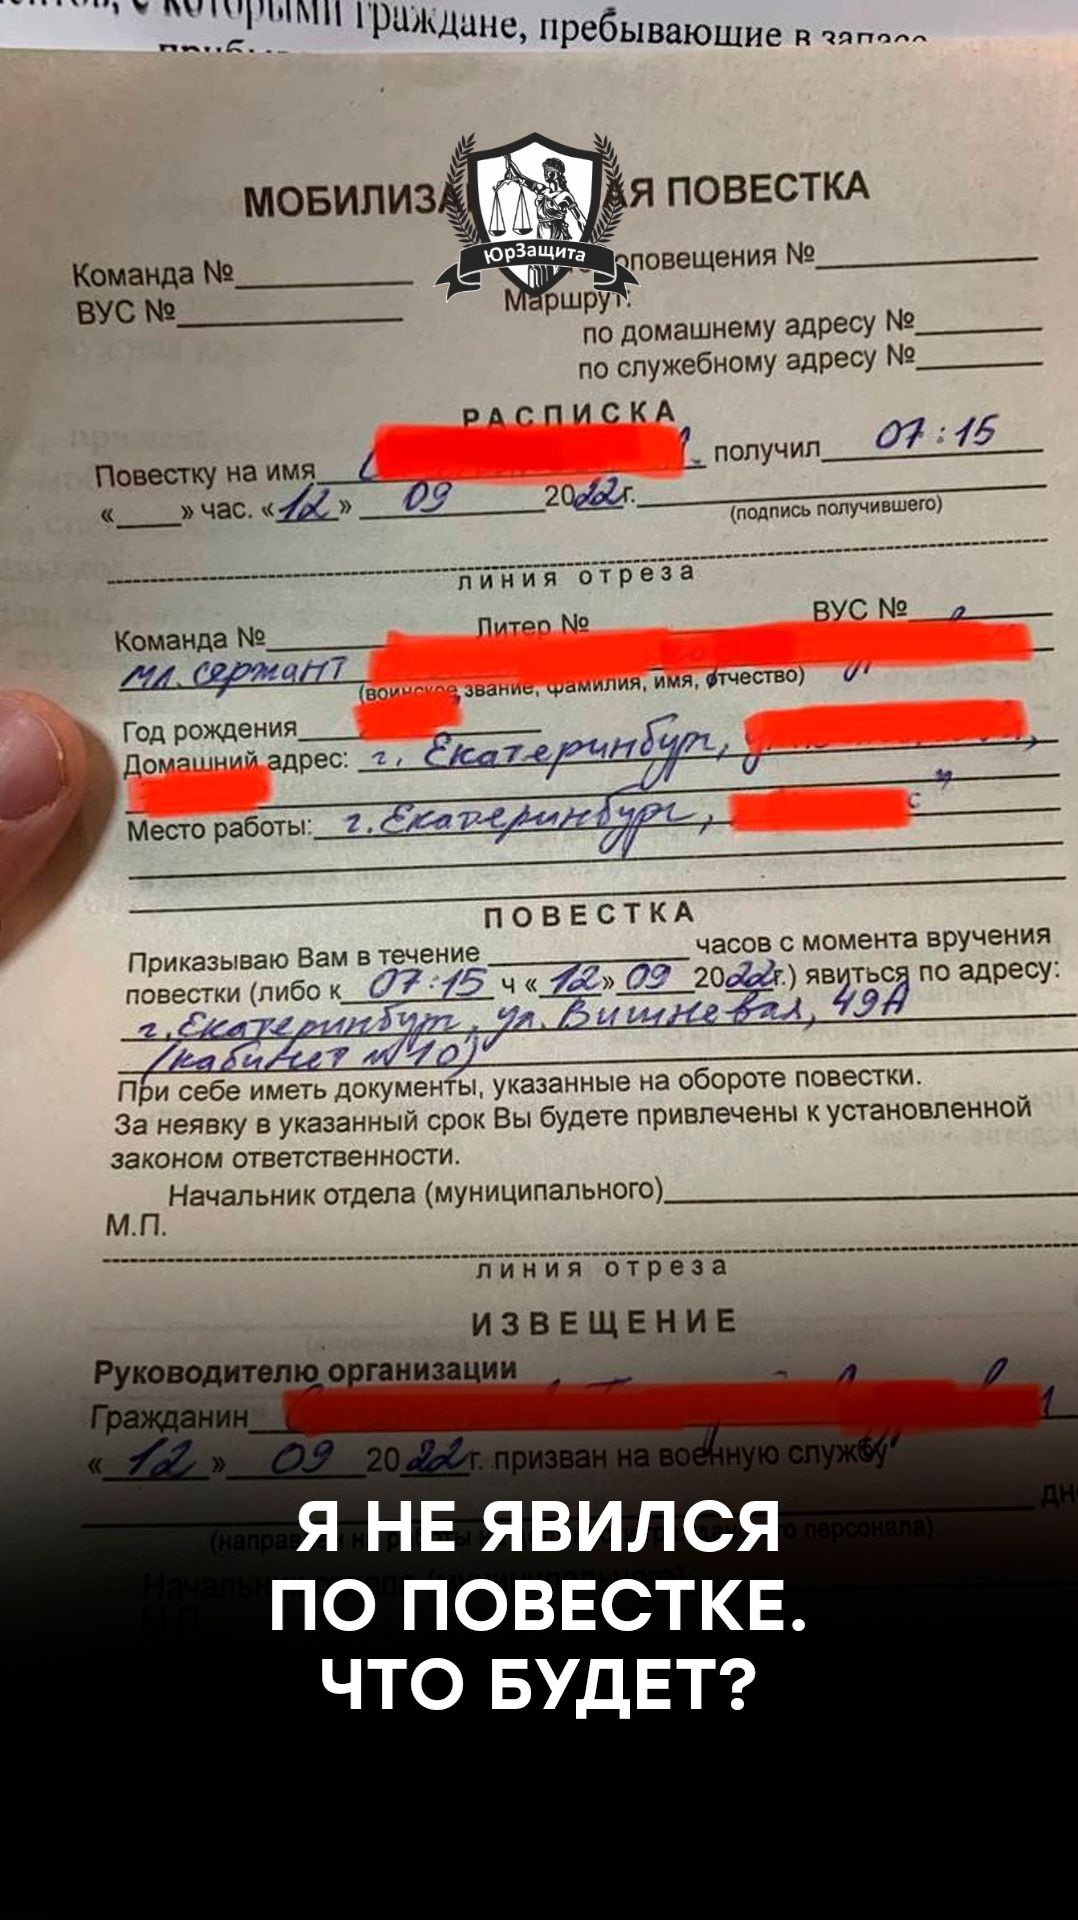 с которыми граждане, пребывающие в запасе
МОБИЛИЗА АЯ ПОВЕСТКА
ЮрЗащита
Команда № оповещения №
ВУС № Маршрут:
по домашнему адресу №
по служебному адресу №
РАСПИСКА
Повестку на имя получил 07:15
« » час. «12» 09 2022г.
(подпись получившего)
линия отреза
Команда № Литер № ВУС №
мл. сержант
(воинское звание, фамилия, имя, отчество)
Год рождения
Домашний адрес: г. Екатеринбург,
Место работы: г. Екатеринбург,
ПОВЕСТКА
Приказываю Вам в течение часов с момента вручения
повестки (либо к 07:15 ч «12» 09 2022г.) явиться по адресу:
г. Екатеринбург, ул. Вишневая, 49А
(кабинет №10)
При себе иметь документы, указанные на обороте повестки.
За неявку в указанный срок Вы будете привлечены к установленной
законом ответственности.
Начальник отдела (муниципального)
М.П.
линия отреза
ИЗВЕЩЕНИЕ
Руководителю организации
Гражданин
«12» 09 2022г. призван на военную службу
Я НЕ ЯВИЛСЯ
ПО ПОВЕСТКЕ.
ЧТО БУДЕТ?